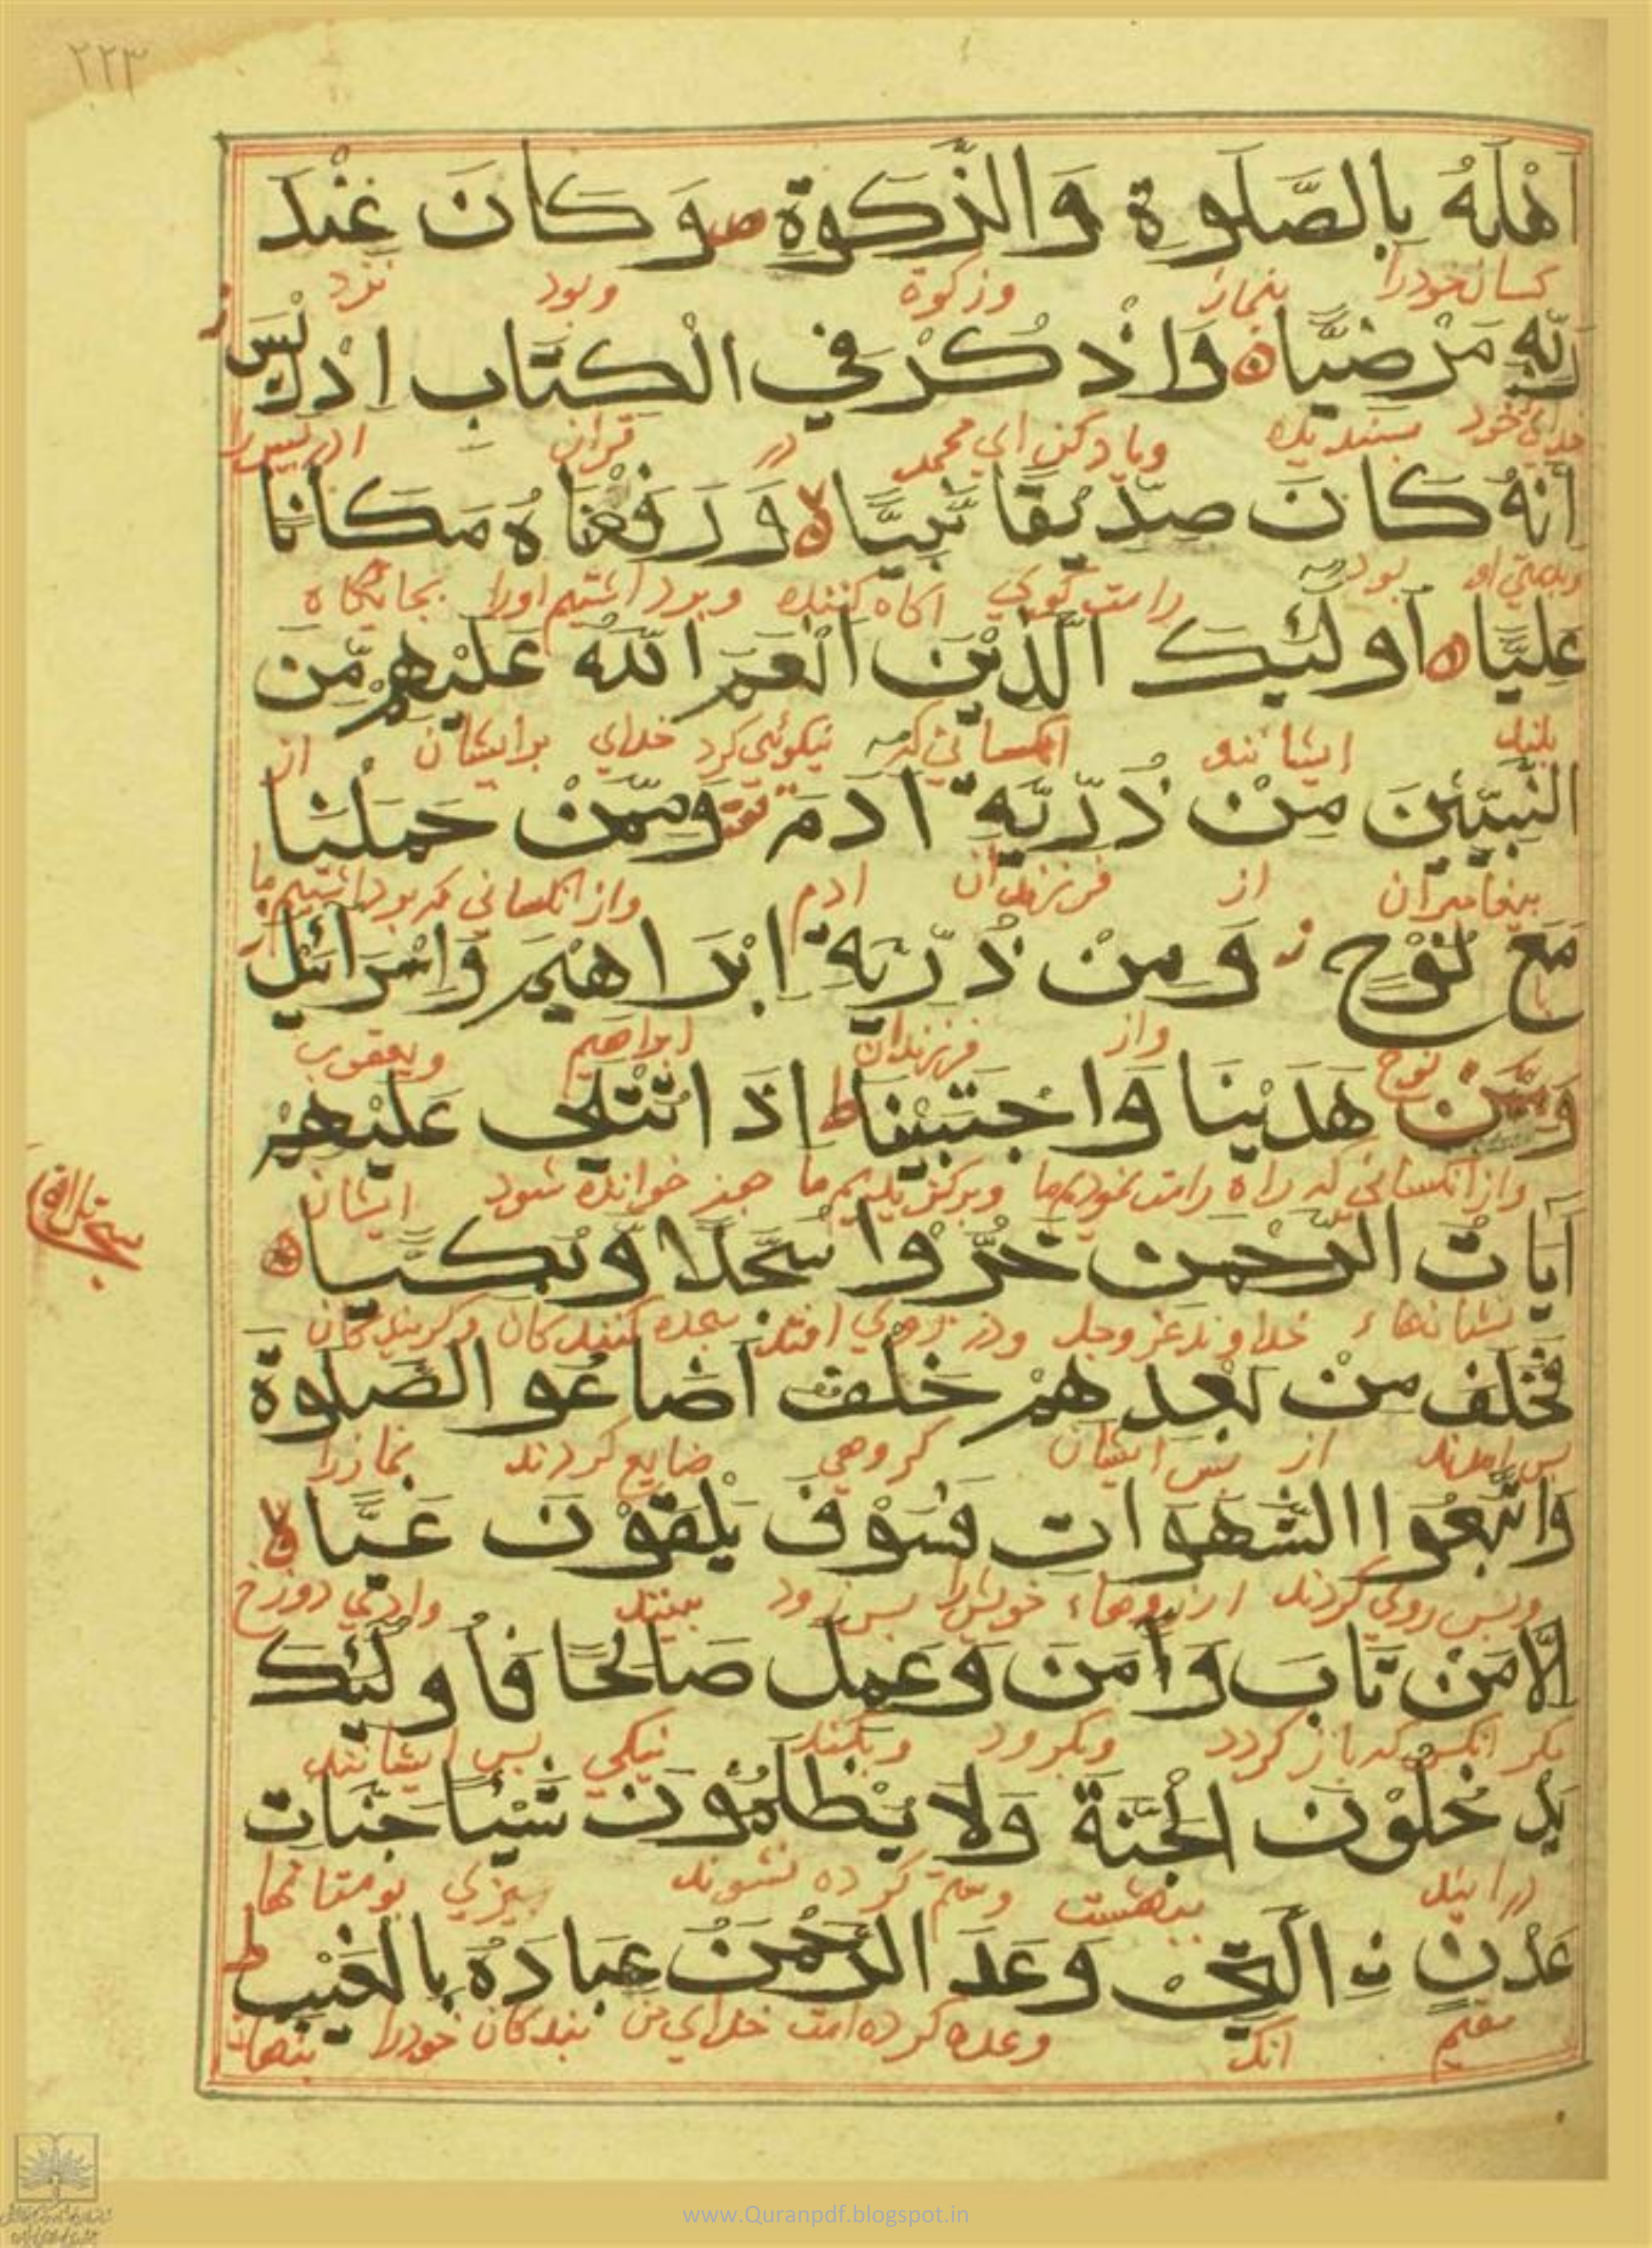 ٢٢٣
اَهْلَهُ بِالصَّلٰوةِ وَالزَّكٰوةِ ص وَكَانَ عِنْدَ
كسان خودرا بنماز وزكوة وبود نزد
رَبِّهِ مَرْضِيًّا وَاذْكُرْ فِي الْكِتَابِ اِدْرِيْسَ ز
خداي خود پسنديده وياد كن اي محمد در قران ادريس را
اِنَّهُ كَانَ صِدِّيْقًا نَّبِيًّا لا وَرَفَعْنَاهُ مَكَانًا
وبدرستي او بود راست كوي اكاه كننده وبرداشتيم اورا بجايكاه
عَلِيًّا اُولٰئِكَ الَّذِيْنَ اَنْعَمَ اللّٰهُ عَلَيْهِمْ مِّنَ
بلند ايشانند انكساني كه نيكوئي كرد خداي برايشان از
النَّبِيّٖنَ مِنْ ذُرِّيَّةِ اٰدَمَ وَمِمَّنْ حَمَلْنَا
پيغامبران از فرزندان ادم واز انكساني كه برداشتيم ما
مَعَ نُوْحٍ ز وَمِنْ ذُرِّيَّةِ اِبْرَاهِيْمَ وَاِسْرَائِيْلَ
با نوح واز فرزندان ابراهيم ويعقوب
وَمِمَّنْ هَدَيْنَا وَاجْتَبَيْنَا ط اِذَا تُتْلٰى عَلَيْهِمْ
واز انكساني كه راه راست نموديم ما وبركزيديم ما چون خوانده شود ايشان
اٰيَاتُ الرَّحْمٰنِ خَرُّوْا سُجَّدًا وَّبُكِيًّا
نشانهاء خداوند عز وجل ودر روي افتند سجده كنندكان وكريندكان
فَخَلَفَ مِنْ بَعْدِهِمْ خَلْفٌ اَضَاعُوا الصَّلٰوةَ
پس امدند از پس ايشان كروهي ضايع كردند نماز را
وَاتَّبَعُوا الشَّهَوَاتِ فَسَوْفَ يَلْقَوْنَ غَيًّا لا
وپس روي كردند ارزوهاء خويش را پس زود ببينند وادي دوزخ
اِلَّا مَنْ تَابَ وَاٰمَنَ وَعَمِلَ صَالِحًا فَاُولٰئِكَ
مكر انكس كه باز كردد وبكرود وبكند نيكي پس ايشانند
يَدْخُلُوْنَ الْجَنَّةَ وَلَا يُظْلَمُوْنَ شَيْئًا جَنَّاتِ
درايند ببهشت وستم كرده نشوند چيزي بوستانها
عَدْنِ نِ الَّتِيْ وَعَدَ الرَّحْمٰنُ عِبَادَهُ بِالْغَيْبِ ط
مقيم انك وعده كرده است خداي من بندكان خودرا پنهان
www.Quranpdf.blogspot.in